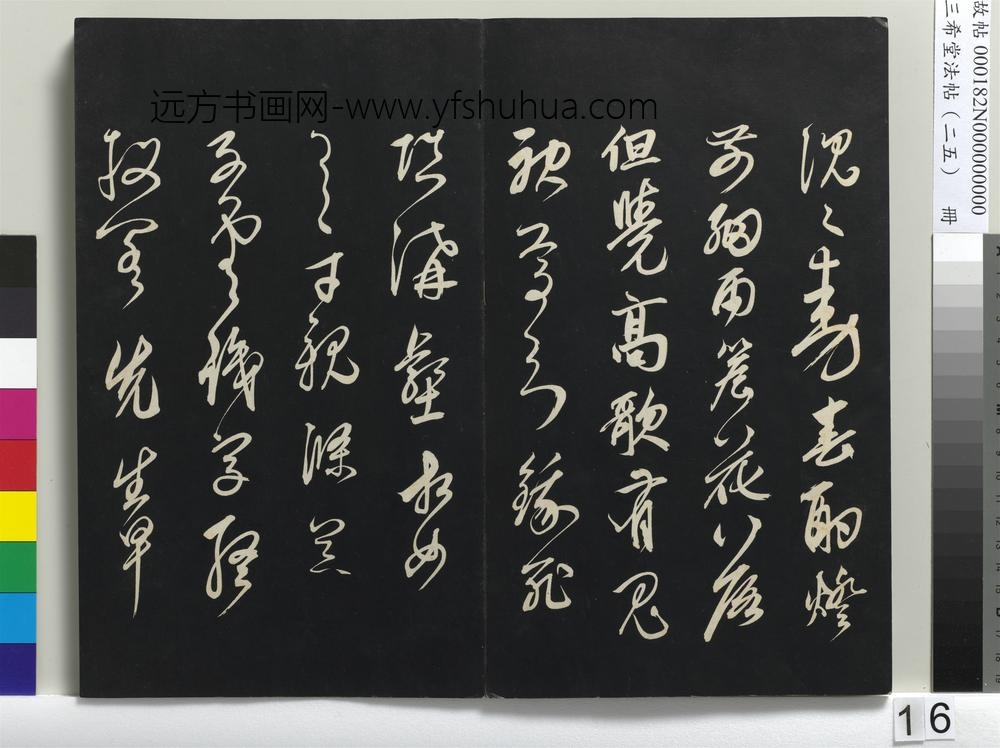 远方书画网-www.yfshuhua.com
沉々動春酌燈
前細雨簷花落
但覺高歌有鬼
神焉知餓死
填溝壑相如
逸才親滌器
子雲識字終
投閣先生早
故帖 000182N000000000
三希堂法帖(二五) 冊
16